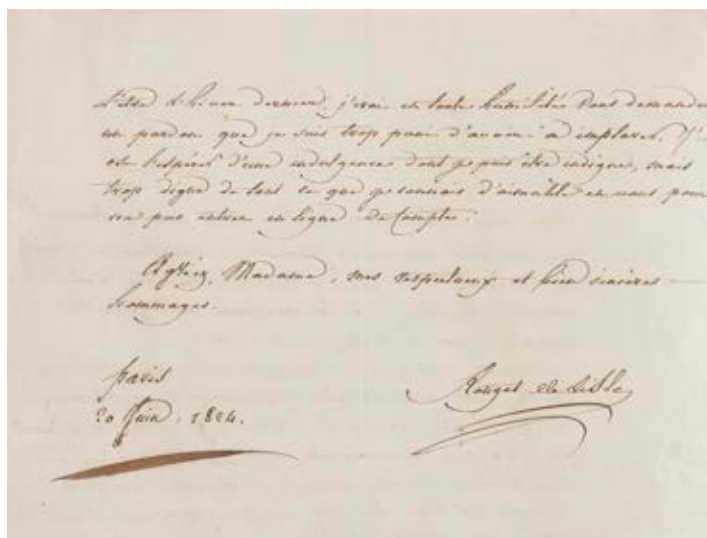 d'hiver dernier, j'irai en toute humilité vous demander
un pardon que je suis trop puni d'avoir à implorer. J'
ose l'espérer d'une indulgence dont je puis être indigne, mais
trop digne de tout ce que je connais d'aimable en vous pour
ne pas entrer en ligne de compte.
Agréez, Madame, mes respectueux et bien sincères
hommages.
Paris
20 Juin, 1824.
Rouget de Lisle